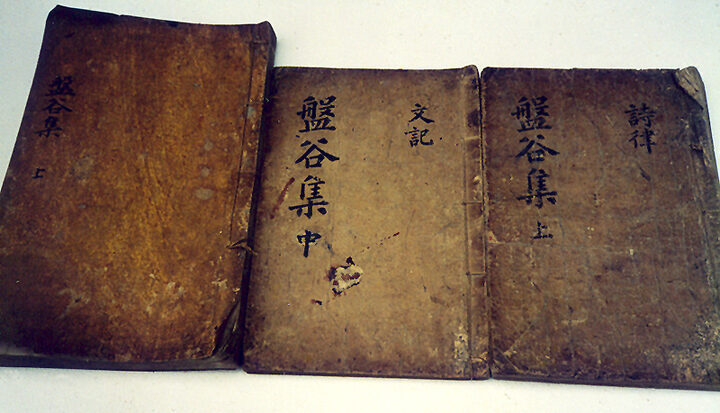 盤谷集
上
文記
盤谷集
中
詩律
盤谷集
上